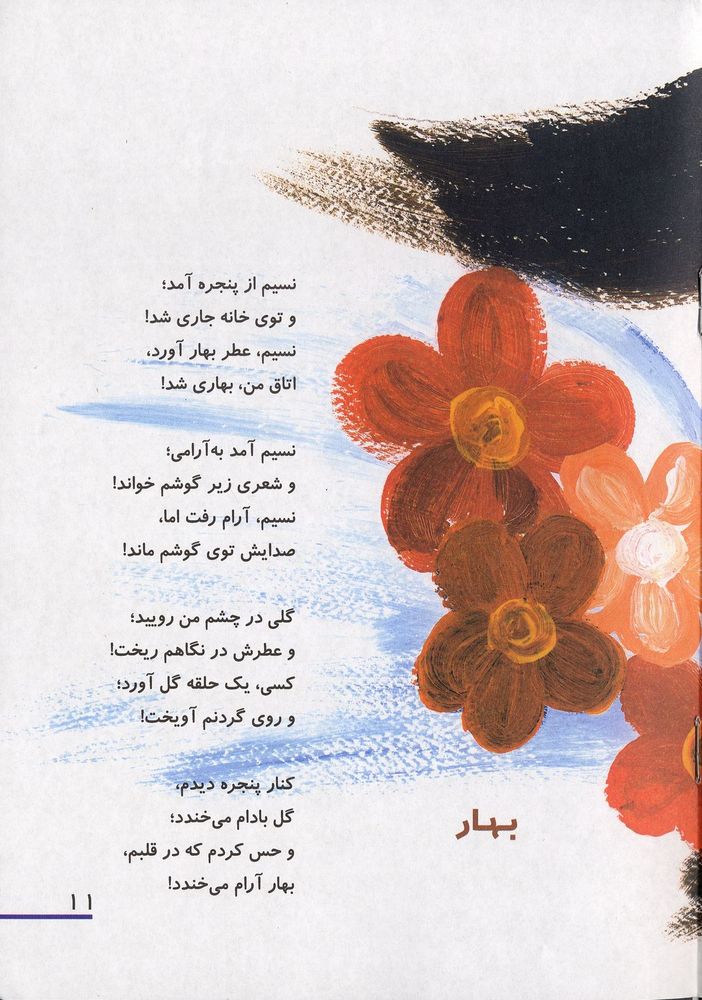 نسیم از پنجره آمد؛
و توی خانه جاری شد!
نسیم، عطر بهار آورد،
اتاق من، بهاری شد!
نسیم آمد به‌آرامی؛
و شعری زیر گوشم خواند!
نسیم، آرام رفت اما،
صدایش توی گوشم ماند!
گلی در چشم من رویید؛
و عطرش در نگاهم ریخت!
کسی، یک حلقه گل آورد؛
و روی گردنم آویخت!
کنار پنجره دیدم،
گل بادام می‌خندد؛
و حس کردم که در قلبم،
بهار آرام می‌خندد!
بهار
۱۱